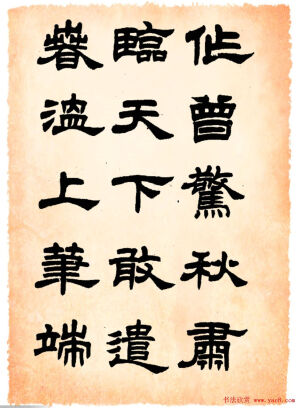 作曾驚秋肅
臨天下敢遣
萅溫上筆端
书法欣赏 www.yac8.com